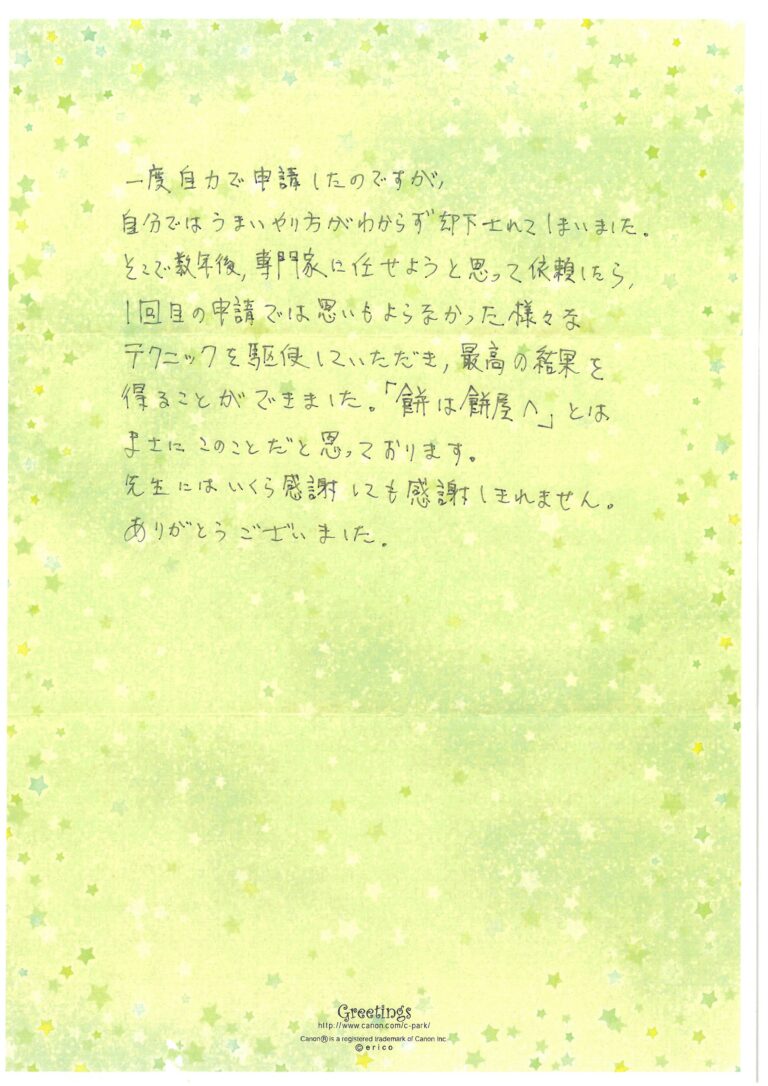 一度自力で申請したのですが,
自分ではうまいやり方がわからず却下されてしまいました。
そこで数年後,専門家に任せようと思って依頼したら,
1回目の申請では思いもよらなかった様々な
テクニックを駆使していただき,最高の結果を
得ることができました。「餅は餅屋へ」とは
まさにこのことだと思っております。
先生にはいくら感謝しても感謝しきれません。
ありがとうございました.
Greetings
http://www.canon.com/c-park/
Canon® is a registered trademark of Canon Inc.
©erico